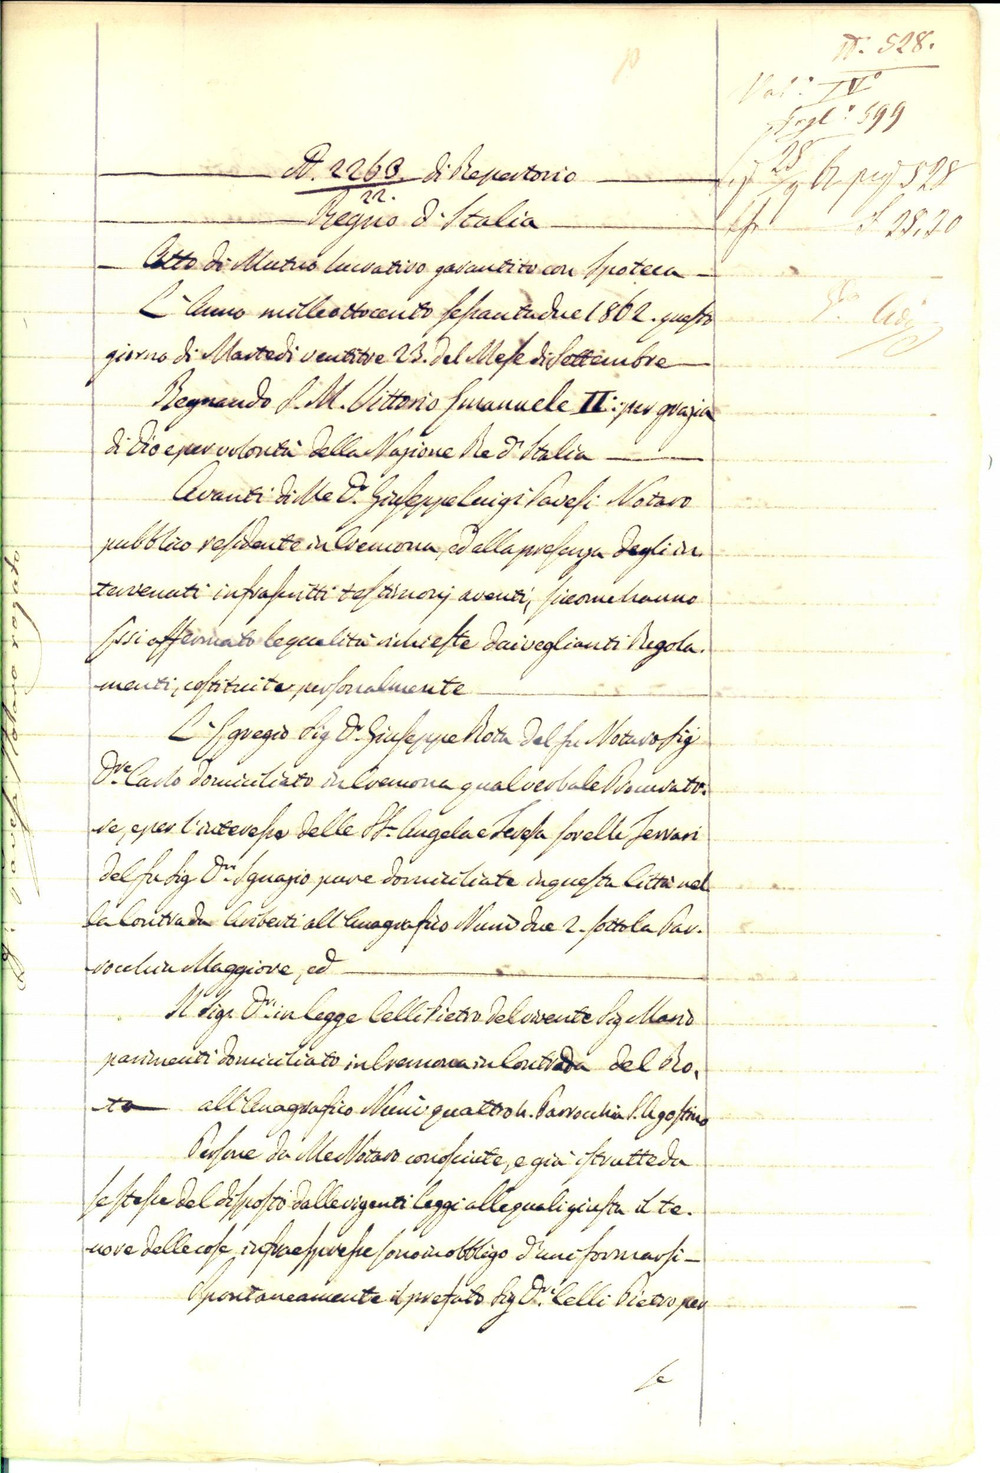 N. 528.
Vol. IV°
Fogl. 599
N. 2263. di Repertorio
22.
Regno d'Italia
Atto di Mutuo lucrativo garantito con Ipoteca
L'Anno milleottocento sessantadue 1862. questo
giorno di Martedi ventitre 23. del Mese di Settembre
Regnando S. M. Vittorio Emanuele II: per grazia
di Dio e per volontà della Nazione Re d'Italia
Avanti di Me Dr. Giuseppe Luigi Pavesi Notaro
pubblico residente in Cremona, ed alla presenza degli in
tervenuti infrascritti testimonj aventi, siccome hanno
essi affermato le qualità richieste dai veglianti Regola.
menti, costituite personalmente
L'Egregio Sig Dr. Giuseppe Rota del fu Notaro Sig
Dre. Carlo domiciliato in Cremona qual verbale Procurato.
re, e per l'interesse delle Angela e Teresa sorelle Ferrari
del fu Sig Dr. Ignazio pure domiciliate in questa Città nel
la Contrada Aviberti all'Anagrafico Num due 2. sotto la Par.
rocchia Maggiore, ed
Il Sigr. Dr. in legge Celli Pietro del vivente Sig Mario
parimenti domiciliato in Cremona in Contrada del Ro.
to all'Anagrafico Num quattro 4. Parrocchia S. Agostino
Persone da Me Notaro conosciute, e già istrutte da
se stesse del disposto dalle vigenti leggi alle quali giusta il te.
nore delle cose infraespresse sono in obbligo d'uniformarsi
Spontaneamente il prefato Sig Dr. Celli Pietro per
se